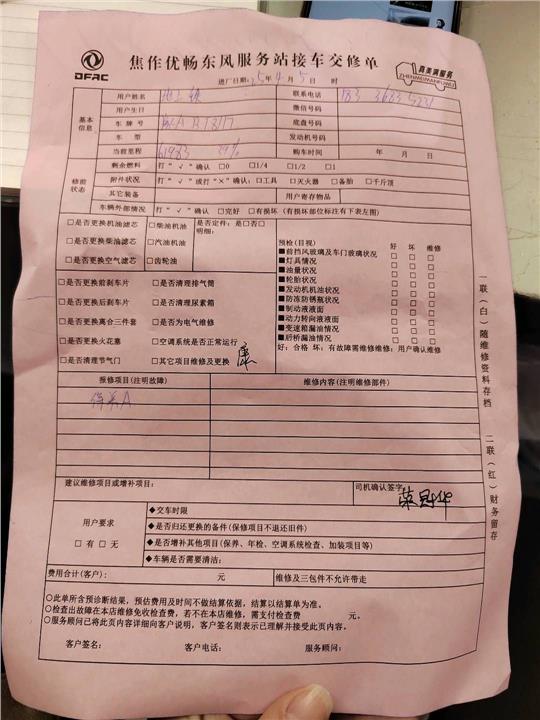 DFAC
焦作优畅东风服务站接车交修单
真美满服务
ZHENMEIMANFUWU
进厂日期: 25年4月5日 时
基本信息
用户姓名 联系电话
用户生日 微信号码
车牌号 底盘号码
车型 发动机号码
当前里程 61983 购车时间 年 月 日
修前状态
剩余燃料 打“√”确认 □0 □1/4 □1/2 □1
附件状况 打“√”或打“×”确认: □工具 □灭火器 □备胎 □千斤顶
其它装备 用户寄存物品
车辆外部情况 打“√”确认 □完好 □有损坏 (有损坏部位标注有下表左图)
□是否更换机油滤芯 □柴油机油 是否定件: 是□否□
□是否更换柴油滤芯 □汽油机油 明细:
□是否更换空气滤芯 □齿轮油
□是否更换前刹车片 □是否清理排气筒
□是否更换后刹车片 □是否清理尿素箱
□是否更换离合三件套 □是否为电气维修
□是否更换火花塞 □空调系统是否正常运行
□是否清理节气门 □其它项目维修及更换 康
预检(目视) 好 坏 维修
■前挡风玻璃及车门玻璃状况 □ □ □
■灯具情况 □ □ □
■油量状况 □ □ □
■轮胎状况 □ □ □
■发动机机油状况 □ □ □
■防冻防锈瓶状况 □ □ □
■制动液液面 □ □ □
■动力转向液液面 □ □ □
■变速箱漏油情况 □ □ □
■后桥漏油情况 □ □ □
好: 合格 坏: 有故障需维修维修: 用户确认维修
报修项目(注明故障) 维修内容(注明维修部件)
保养A
建议维修项目或增补项目: 司机确认签字:
用户要求
□有 □无
◆交车时限
◆是否归还更换的备件(保修项目不退还旧件)
◆是否增补其他项目(保养、年检、空调系统检查、加装项目等)
◆车辆是否需要清洁:
费用合计(客户): 元 维修及三包件不允许带走
○此单所含预诊断结果,预估费用及时间不做结算依据,结算以结算单为准。
○检查出故障在本店维修免收检查费,若不在本店维修,需支付检查费 元。
○服务顾问已将此页内容详细向客户说明,客户签名则表示已理解并接受此页内容。
客户签名: 客户电话: 服务顾问:
一联(白)随维修资料存档 二联(红)财务留存